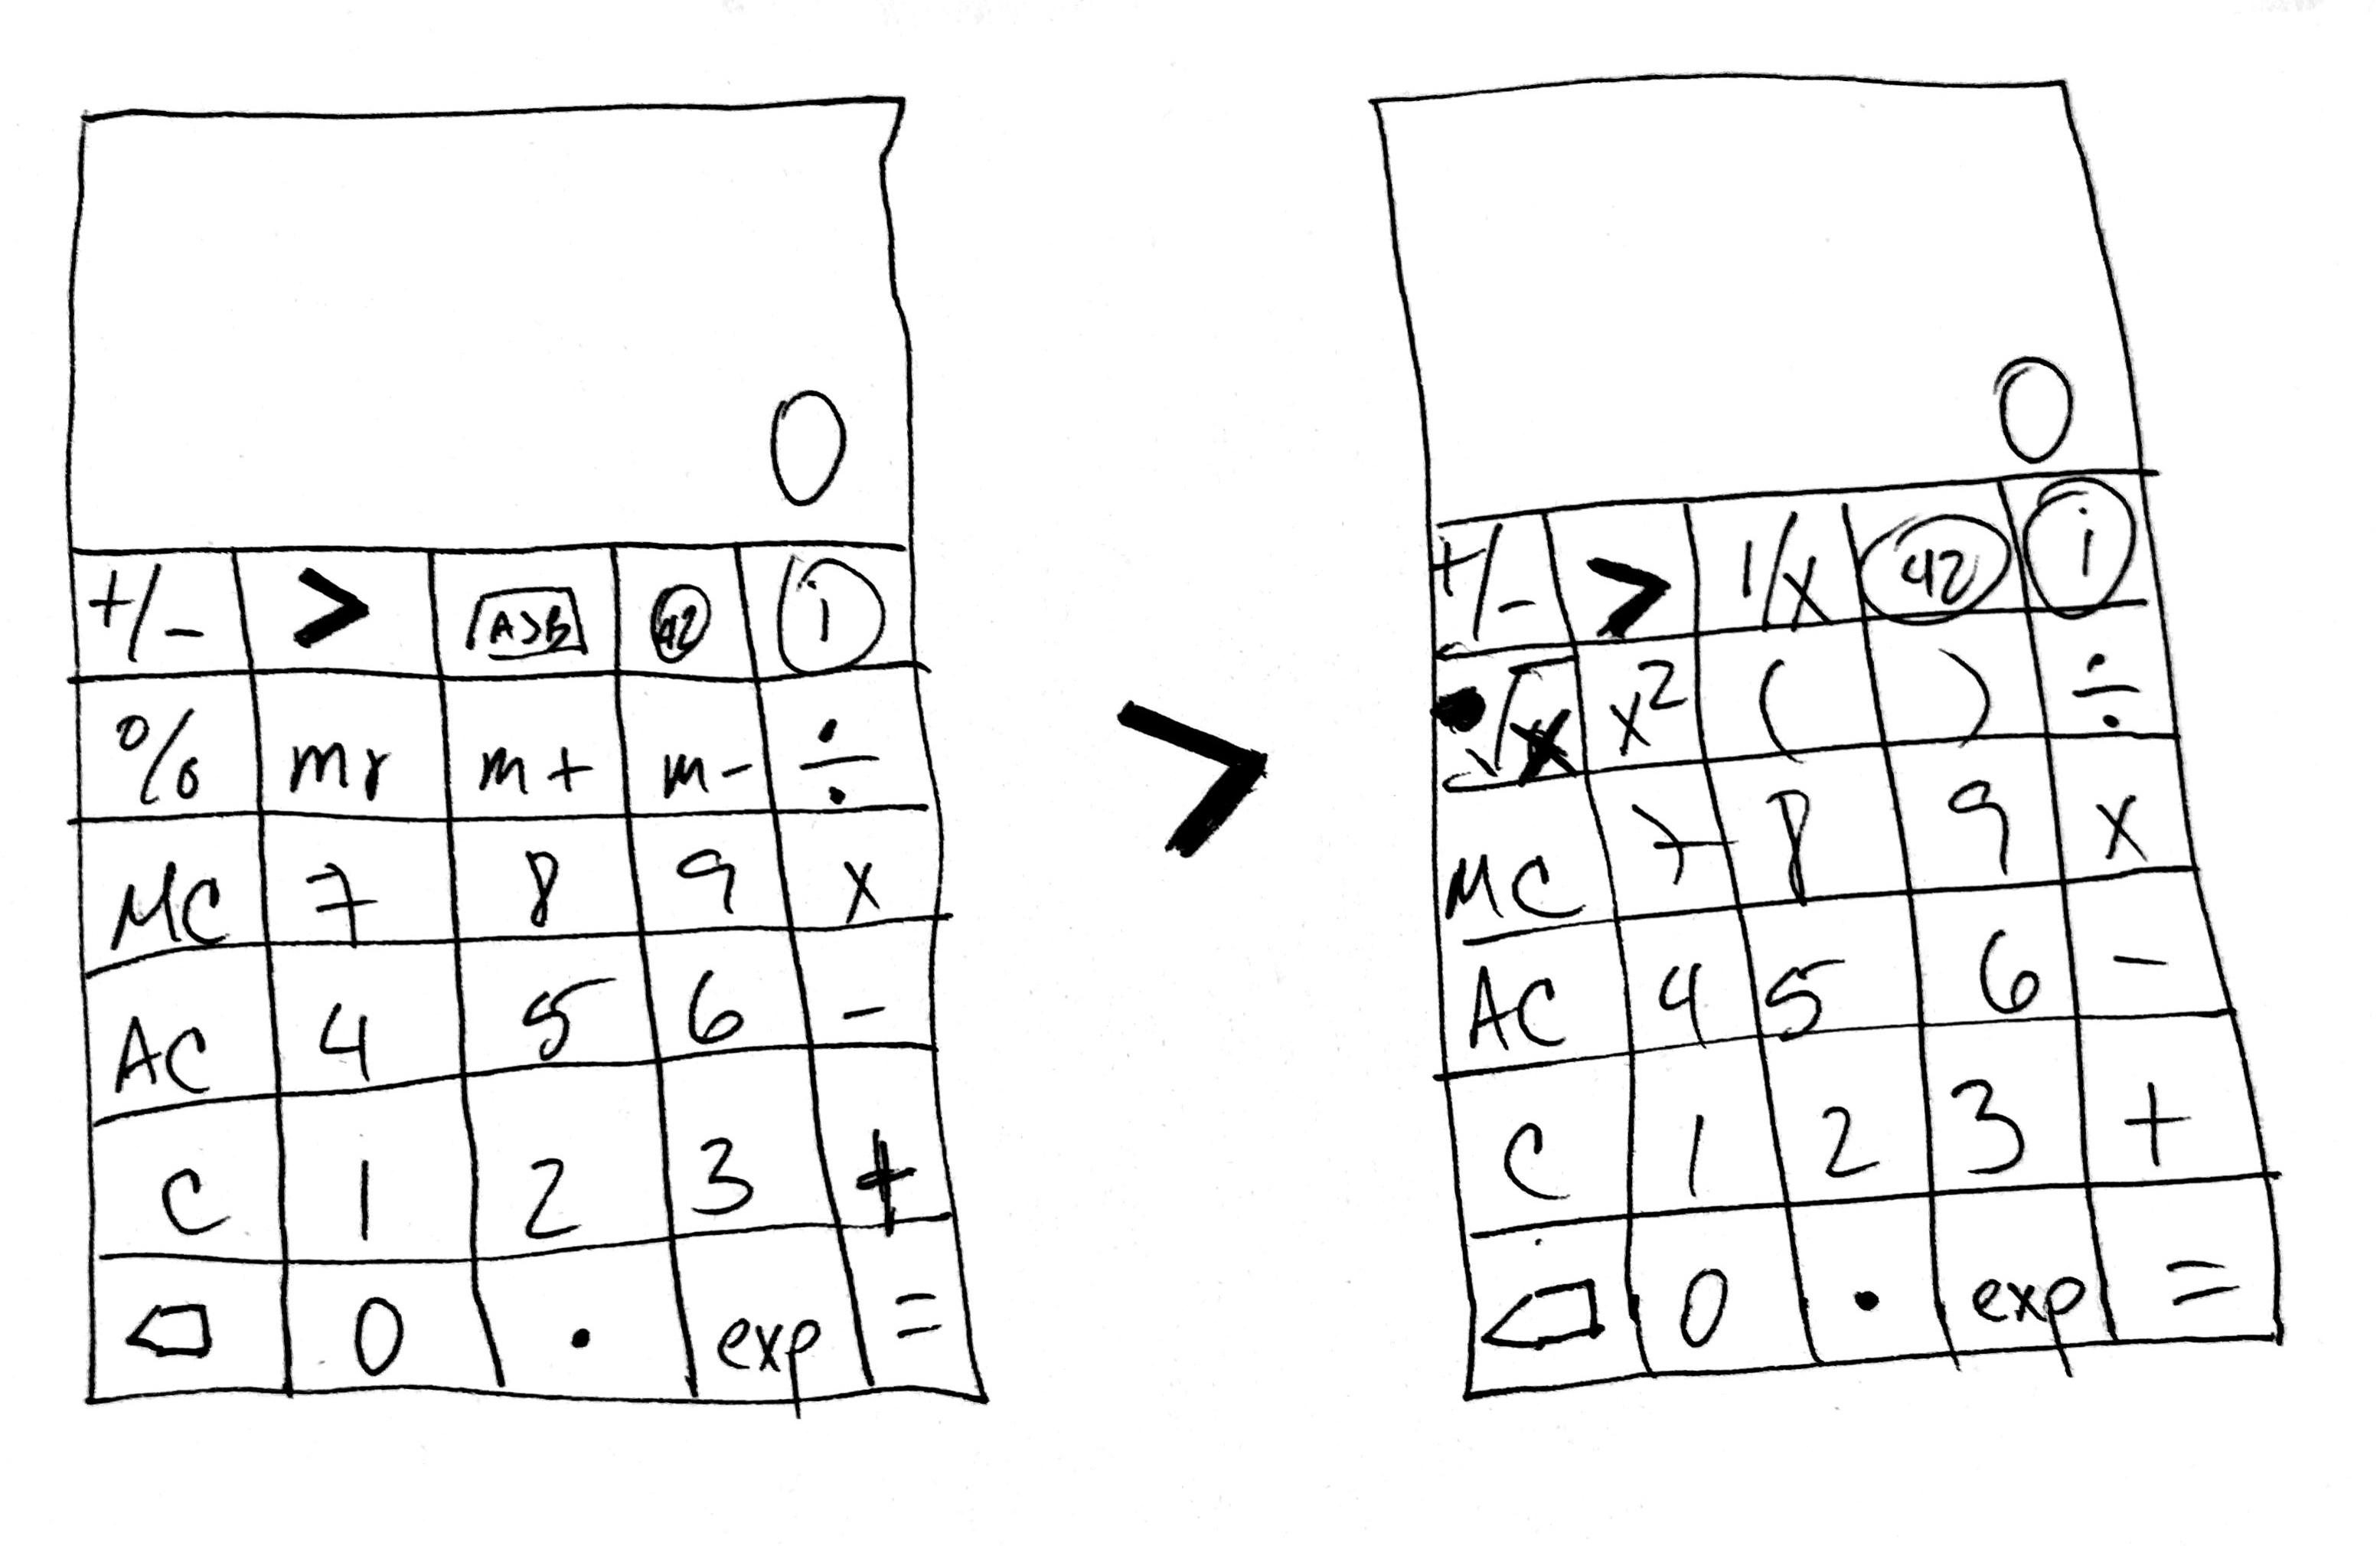 0
+/- > A>B 42 i
% mr m+ m- ÷
MC 7 8 9 x
AC 4 5 6 -
C 1 2 3 +
0 . exp =
>
0
+/- > 1/x 42 i
√x x² ( ) ÷
MC 7 8 9 x
AC 4 5 6 -
C 1 2 3 +
0 . exp =